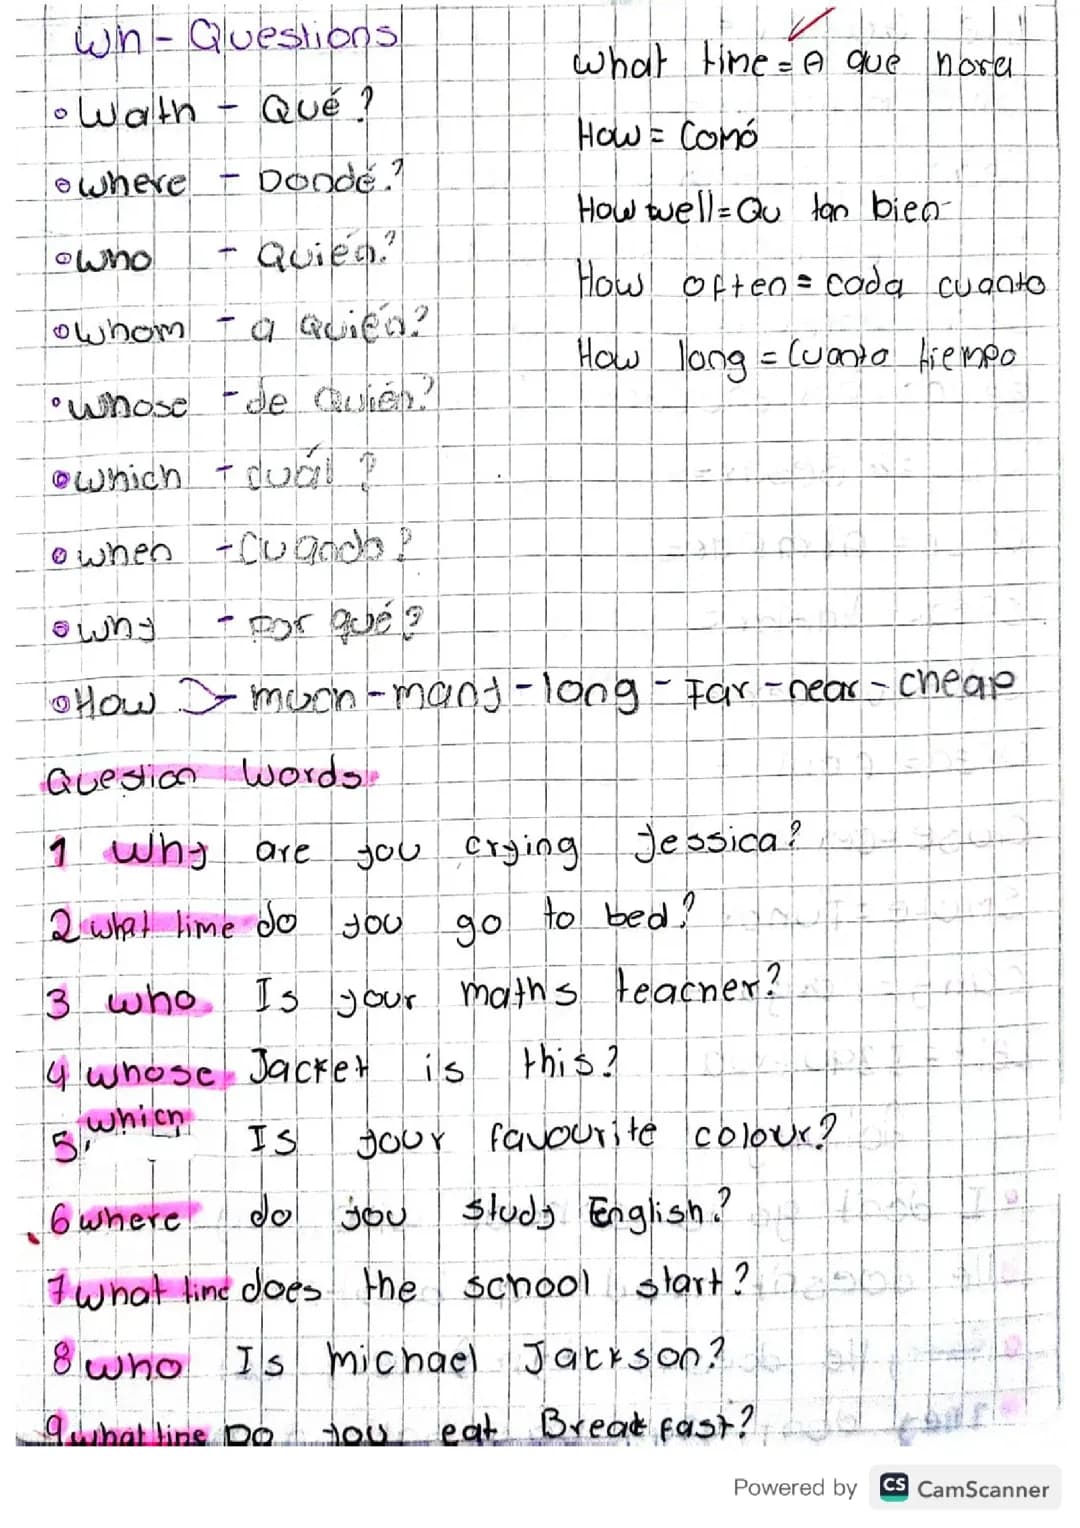 Wh - Questions
• Wath - Qué ?
• where - Dondé ?
• who - Quién ?
• whom - a quién ?
• whose - de Quién ?
• which - cuál ?
• when - Cuando ?
• why - por qué ?
• How > much - many - long - Far - near - cheap
what time = A que hora
How = Comó
How well = Qu tan bien
How often = cada cuanto
How long = Cuanto tiempo
Question Words
1 why are you crying Jessica?
2 what time do you go to bed?
3 who Is your maths teacher?
4 whose Jacket is this?
5. which Is your favourite colour?
6 where do you study English?
7 what time does the school start?
8 who Is michael Jackson?
9 what time Do you eat Break fast?
Powered by CS CamScanner